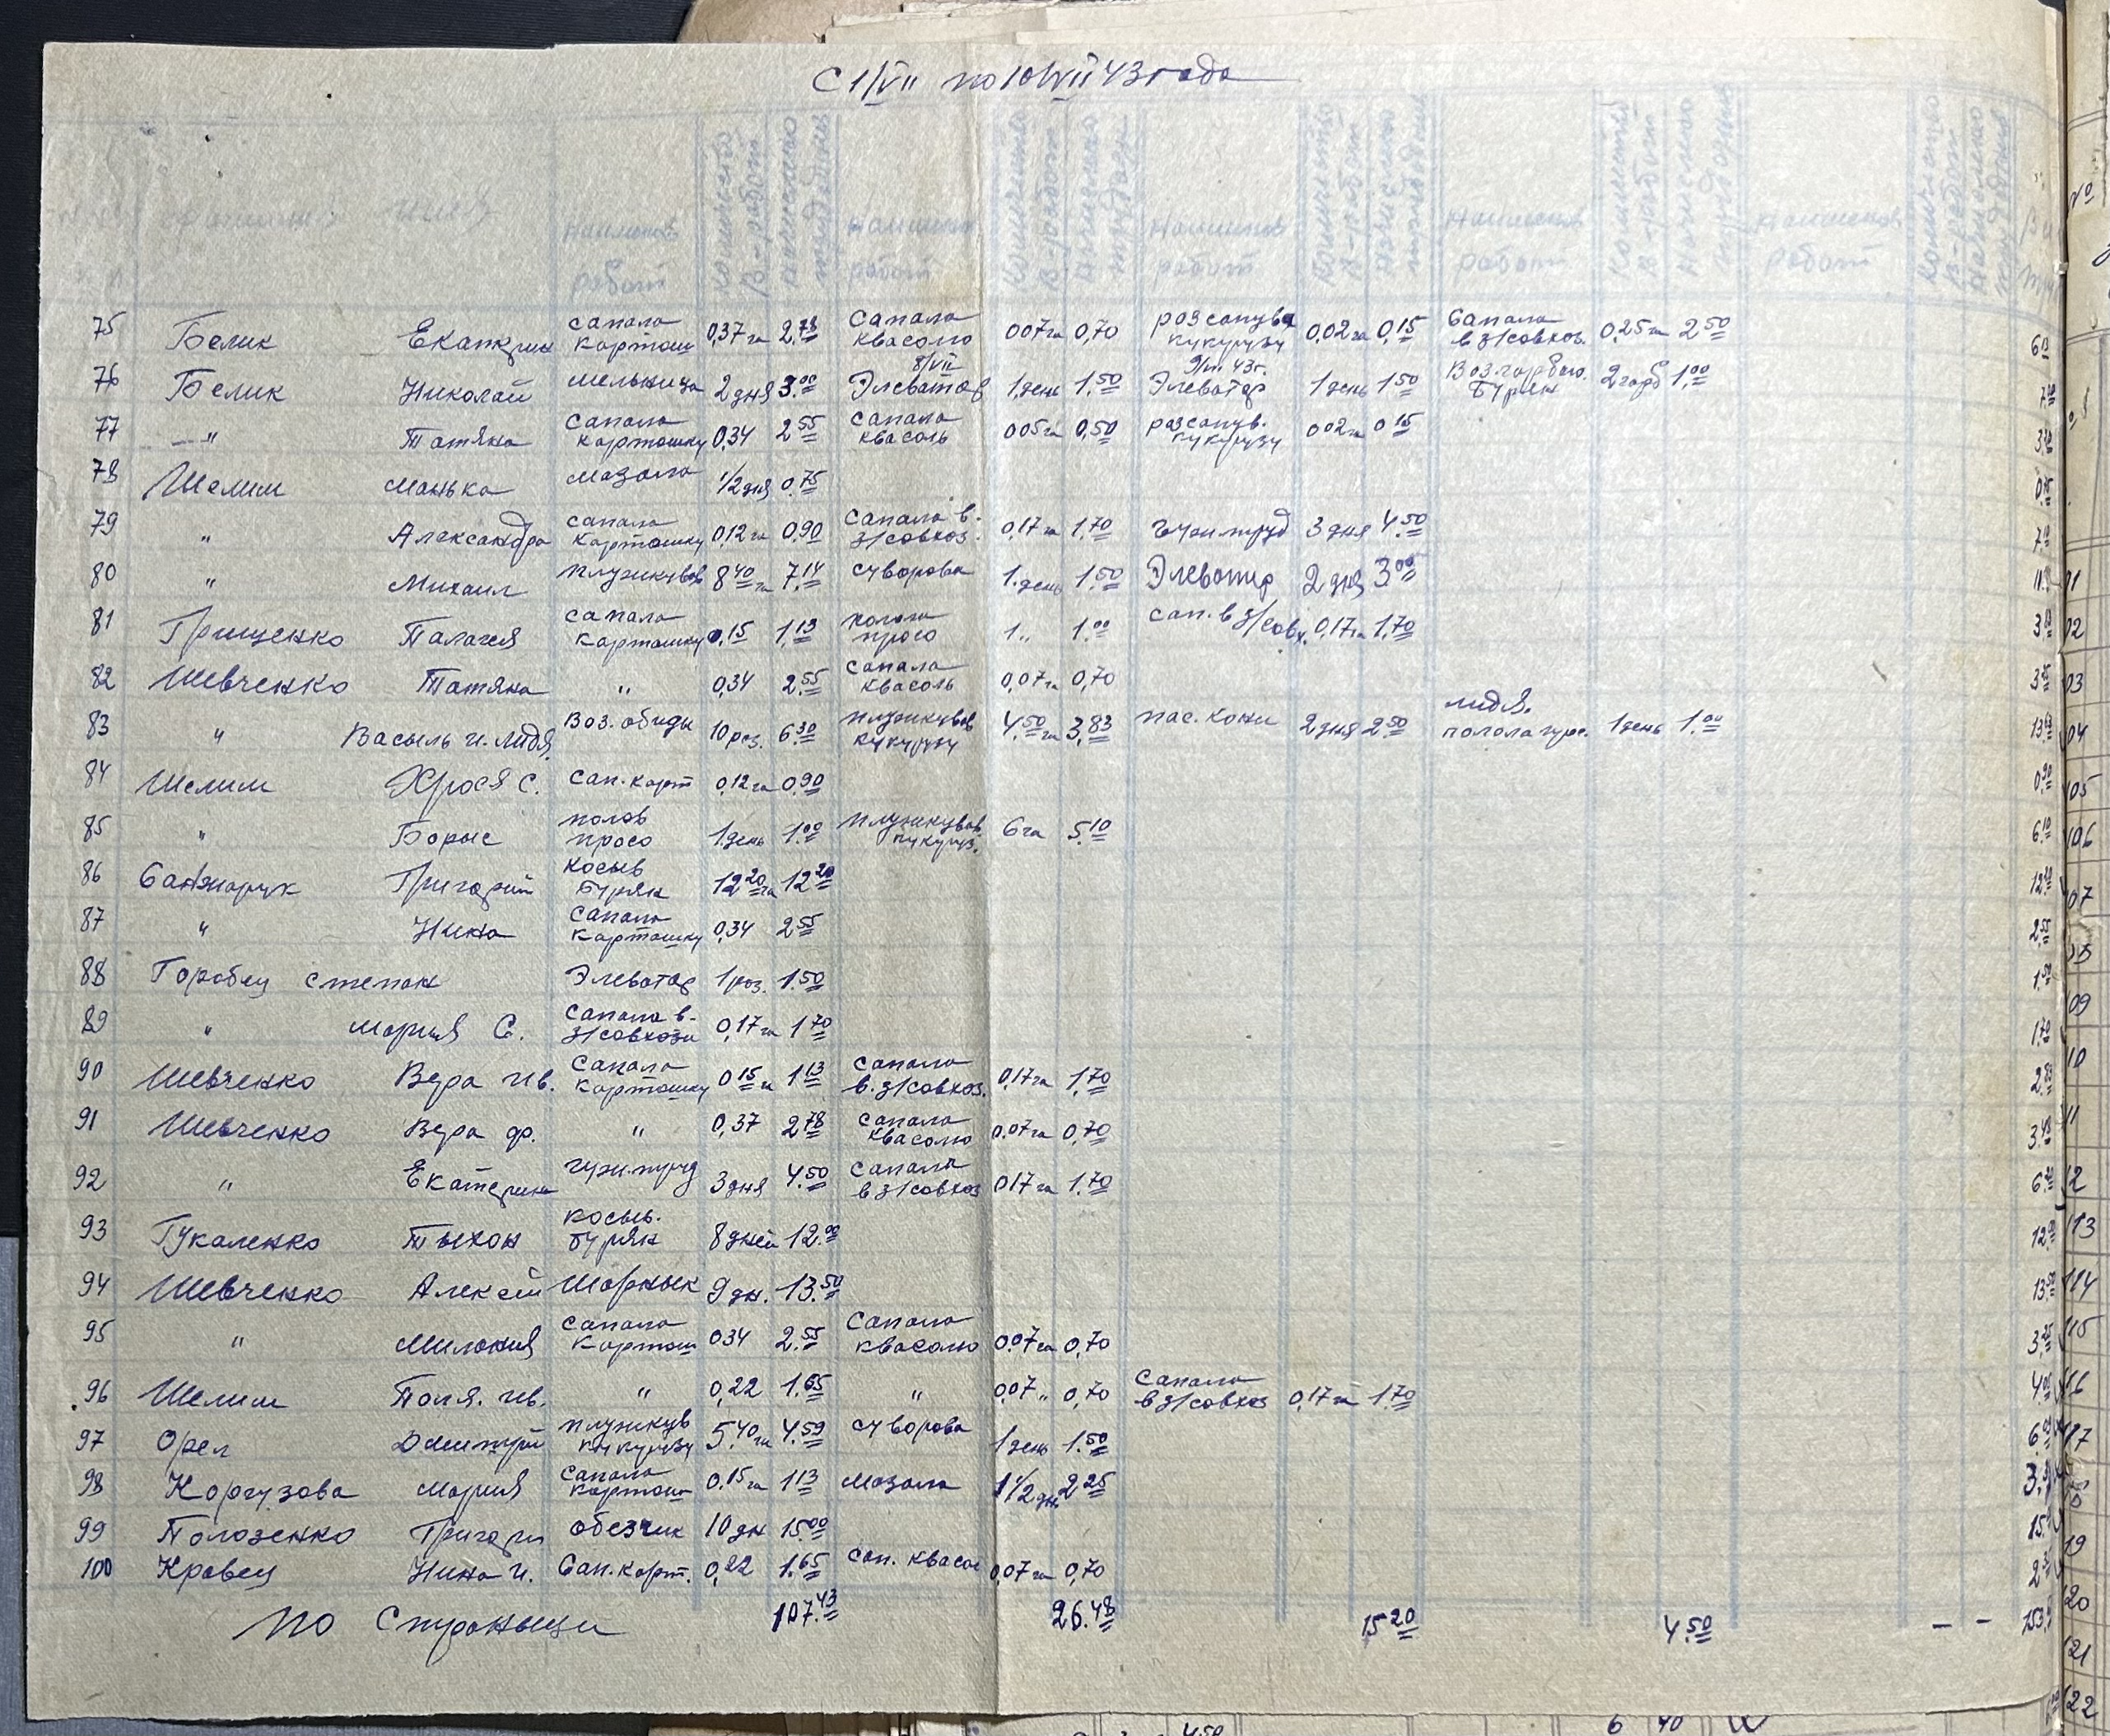 С 1/VII по 10/VII 43 года
Фамилия Имя Наименов работ Количество В-работ Начислено трудодней Наименов работ Количество В-работ Начислено трудодн Наименов работ Количеств В-работ Начислено трудодней Наименов работ Количество В-работ Начислено трудодней Наименов работ Количество В-работ Начислено трудодней
75 Белик Екатерин сапала картош 0,37 га 2.78 сапала квасолю 007 га 0,70 розсапува кукурузу 0,02 га 0,15 Сапала в з/совхоз. 0,25 га 2 50
76 Белик Николай мельница 2 дня 3.00 8/VII Элеватор 1.день 1.50 9/VII 43 г. Элеватор 1 день 1 50 Воз. Буряк 2 гарб 1.00
77 —"— Татяна сапала картошку 0,34 2 55 сапала квасоль 005 га 0,50 розсапув. кукурузу 002 га 0 15
78 Шелим Манька мазала 1/2 дня 0.75
79 " Александра сапала картошку 0,12 га 0,90 Сапала в- з/совхоз. 0,17 га 1,70 3 дня 4.50
80 " Михаил плужкував 8 40 га 7.14 суворова 1.день 1.50 Элеватор 2 дня 3 00
81 Грищенко Палагея сапала картошку 0,15 1,13 полола просо 1 „ 1.00 сап. в з/совх. 0,17 га 1,70
82 Шевченко Татяна " 0,34 2.55 сапала квасоль 0,07 га 0,70
83 " Васыль и. Лидя Воз. обиды 10 роз. 6.30 плужкував кукурузу 4.50 га 3,83 пас. кони 2 дня 2 50 лидя. полола 1 день 1.00
84 Шелим Хрося С. Сап. карт 0,12 га 0,90
85 " Борыс полов просо 1.день 1.00 плужкував кукуруз. 6 га 5.10
86 Григорий косыв Буряк 12 20 га 12 20
87 " Нина сапала картошку 0,34 2 55
88 Горобец степан Элеватор 1 роз. 1.50
89 " Мария С. Сапала в- з/совхози 0,17 га 1 70
90 Шевченко Вера Ив. Сапала картошку 0 15 га 1 13 Сапала в. з/совхоз. 0,17 га 1,70
91 Шевченко Вера ф. " 0,37 2 78 Сапала квасолю 0.07 га 0,70
92 " Екатерина 3 дня 4.50 сапала в з/совхоз 017 га 1.70
93 Гукаленко Тыхон косыв. Буряк 8 дней 12.00
94 Шевченко Алексей шорнык 9 дн. 13.50
95 " сапала картош 034 2.55 Сапала квасолю 0.07 га 0,70
96 Шелим Поля. Ив. " 0,22 1.65 " 0,07 „ 0,70 Сапала в з/совхоз 0,17 га 1.70
97 Орел Дмитрий плужкув кукурузу 5.40 га 4.59 суворова 1 день 1.50
98 Каргузова Мария Сапала картош 0.15 га 1 13 Мазала 1 1/2 дн 2 25
99 Полозенко Григори объезчик 10 дн 15.00
100 Кравец Нина И. Сап. карт. 0,22 1.65 Сап. квасол 0,07 га 0,70
По Страныци 107.43 26.48 15 20 4.50 — —